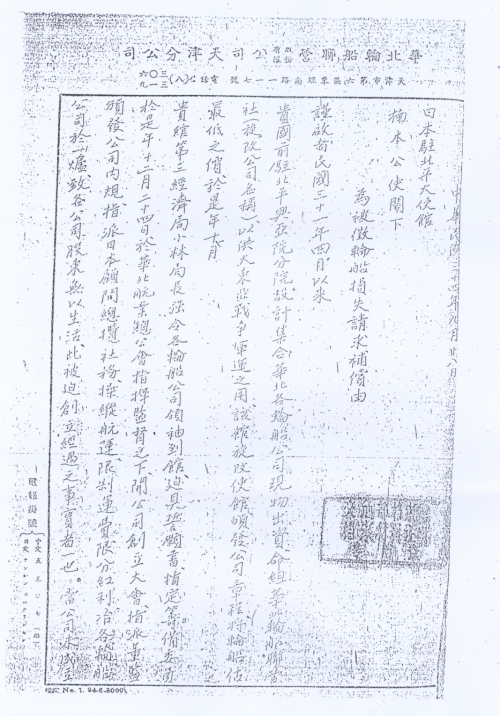 華北輪船聯營股份有限公司天津分公司
天津市第六區東堤南路一一七號 電話
中華民國三十四年　月廿八日
日本駐北平大使館
楠本公使閣下
為被徵輪船損失請求補償由
謹啟者民國三十一年四月以來
貴國前駐北平興亞院分院設計集合華北各輪船公司現物出資命組華北輪船聯營
社(後改公司名稱)以供大東亞戰爭軍運之用該館旋改使館頒發公司章程將輪船估
最低之價於是年十月
貴館第三經濟局小林局長強令各輪船公司領袖到館迫具誓願書指定籌備委員
於是年十二月二十四日於華北航業總公會指揮監督之下開公司創立大會指派董監
頒發公司內規指派日本顧問總攬社務操縱航運限制運費限分紅利治各輪船
公司於一爐致各公司股東無以生活此被迫創立經過之事實者一也。當公司未成立
電報掛號
No. 1. 94.6.5000